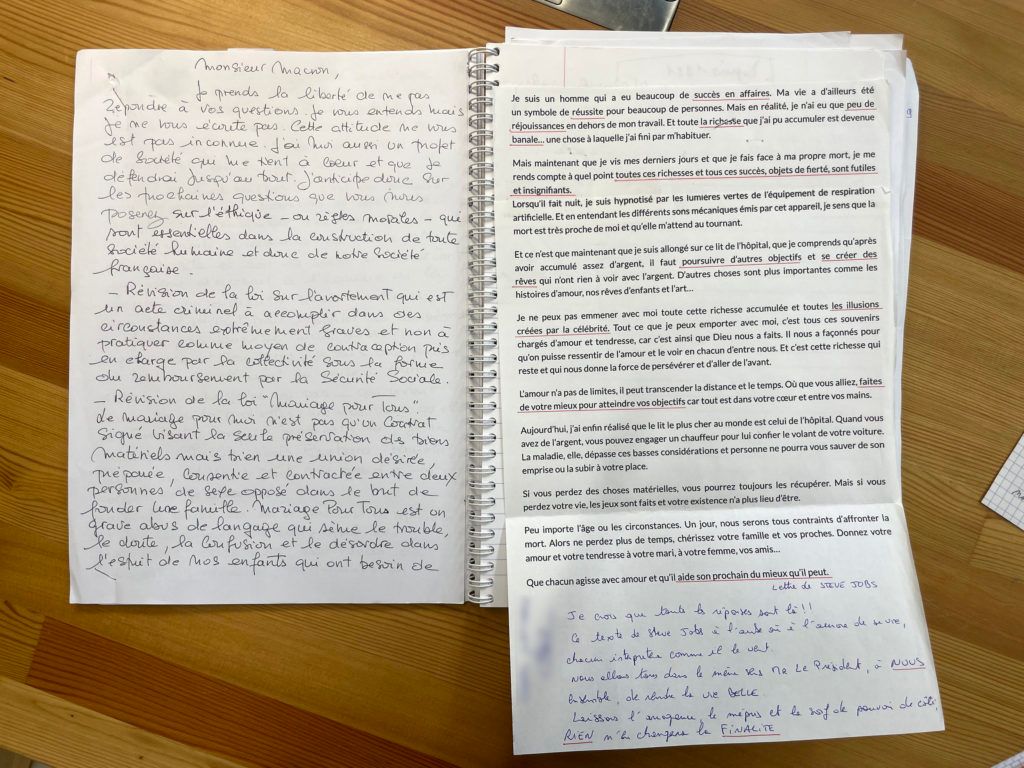 Monsieur Macron,
Je prends la liberté de ne pas
répondre à vos questions. Je vous entends mais
je ne vous écoute pas. Cette attitude ne vous
est pas inconnue. J'ai moi aussi un projet
de société qui me tient à cœur et que je
défendrai jusqu'au bout. J'anticipe donc sur
les prochaines questions que vous nous
poserez sur l'éthique - ou règles morales - qui
sont essentielles dans la construction de toute
société humaine et donc de notre société
française.
- Révision de la loi sur l'avortement qui est
un acte criminel à accomplir dans des
circonstances extrêmement graves et non à
pratiquer comme moyen de contraception pris
en charge par la collectivité sous la forme
du remboursement par la Sécurité Sociale.
- Révision de la loi "Mariage pour Tous".
Le mariage pour moi n'est pas qu'un contrat
signé visant la seule préservation des biens
matériels mais bien une union désirée,
préparée, consentie et contractée entre deux
personnes de sexe opposé dans le but de
fonder une famille. Mariage Pour Tous est un
grave abus de langage qui sème le trouble,
le doute, la confusion et le désordre dans
l'esprit de nos enfants qui ont besoin de
Je suis un homme qui a eu beaucoup de succès en affaires. Ma vie a d'ailleurs été
un symbole de réussite pour beaucoup de personnes. Mais en réalité, je n'ai eu que peu de
réjouissances en dehors de mon travail. Et toute la richesse que j'ai pu accumuler est devenue
banale... une chose à laquelle j'ai fini par m'habituer.
Mais maintenant que je vis mes derniers jours et que je fais face à ma propre mort, je me
rends compte à quel point toutes ces richesses et tous ces succès, objets de fierté, sont futiles
et insignifiants.
Lorsqu'il fait nuit, je suis hypnotisé par les lumières vertes de l'équipement de respiration
artificielle. Et en entendant les différents sons mécaniques émis par cet appareil, je sens que la
mort est très proche de moi et qu'elle m'attend au tournant.
Et ce n'est que maintenant que je suis allongé sur ce lit de l'hôpital, que je comprends qu'après
avoir accumulé assez d'argent, il faut poursuivre d'autres objectifs et se créer des
rêves qui n'ont rien à voir avec l'argent. D'autres choses sont plus importantes comme les
histoires d'amour, nos rêves d'enfants et l'art...
Je ne peux pas emmener avec moi toute cette richesse accumulée et toutes les illusions
créées par la célébrité. Tout ce que je peux emporter avec moi, c'est tous ces souvenirs
chargés d'amour et tendresse, car c'est ainsi que Dieu nous a faits. Il nous a façonnés pour
qu'on puisse ressentir de l'amour et le voir en chacun d'entre nous. Et c'est cette richesse qui
reste et qui nous donne la force de persévérer et d'aller de l'avant.
L'amour n'a pas de limites, il peut transcender la distance et le temps. Où que vous alliez, faites
de votre mieux pour atteindre vos objectifs car tout est dans votre cœur et entre vos mains.
Aujourd'hui, j'ai enfin réalisé que le lit le plus cher au monde est celui de l'hôpital. Quand vous
avez de l'argent, vous pouvez engager un chauffeur pour lui confier le volant de votre voiture.
La maladie, elle, dépasse ces basses considérations et personne ne pourra vous sauver de son
emprise ou la subir à votre place.
Si vous perdez des choses matérielles, vous pourrez toujours les récupérer. Mais si vous
perdez votre vie, les jeux sont faits et votre existence n'a plus lieu d'être.
Peu importe l'âge ou les circonstances. Un jour, nous serons tous contraints d'affronter la
mort. Alors ne perdez plus de temps, chérissez votre famille et vos proches. Donnez votre
amour et votre tendresse à votre mari, à votre femme, vos amis...
Que chacun agisse avec amour et qu'il aide son prochain du mieux qu'il peut.
Lettre de STEVE JOBS
Je crois que toute les réponses sont là !!
Ce texte de Steve Jobs à l'aube ou à l'aurore de sa vie,
chacun interprètera comme il le veut.
Nous allons tous dans le même sens Mr Le Président, à NOUS
Ensemble, de rendre la vie BELLE.
Laissons l'arrogance, le mépris et la soif de pouvoir de côté,
RIEN n'en changera la FINALITE